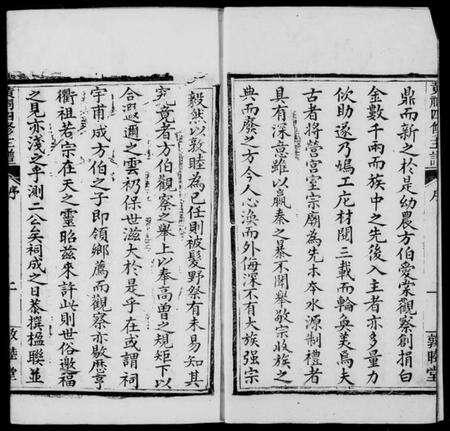 鼎而新之於是幼農方伯愛棠觀察創捐白
金數千兩而族中之先後入主者亦多量力
佽助遂乃鳩工庀材閱三載而輪奐美焉夫
古者將營宮室宗廟為先木本水源制禮者
具有深意雖以嬴秦之暴不聞舉敬宗收族之
典而廢之方今人心渙而外侮深不有大族強宗
序
一
敦睦堂
毅然以敦睦為己任則被髮野祭有未易知其
究竟者方伯觀察之舉上以奉高曾之規矩下以
合遐邇之雲礽保世滋大於是乎在或謂祠
宇甫成方伯之子即領鄉薦而觀察亦歇應亨
衢祖若宗在天之靈昭茲來許此則世俗邀福
之見亦淺之乎測二公矣祠成之日蔡撰楹聯並
四修主譜
序
二
敦睦堂